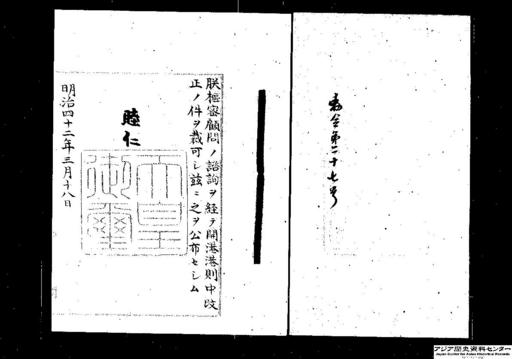 勅令第二十七号
朕枢密顧問ノ諮詢ヲ経テ開港港則中改
正ノ件ヲ裁可シ茲ニ之ヲ公布セシム
睦仁
天皇御璽
明治四十二年三月十八日
アジア歴史資料センター
Japan Center for Asian Historical Records